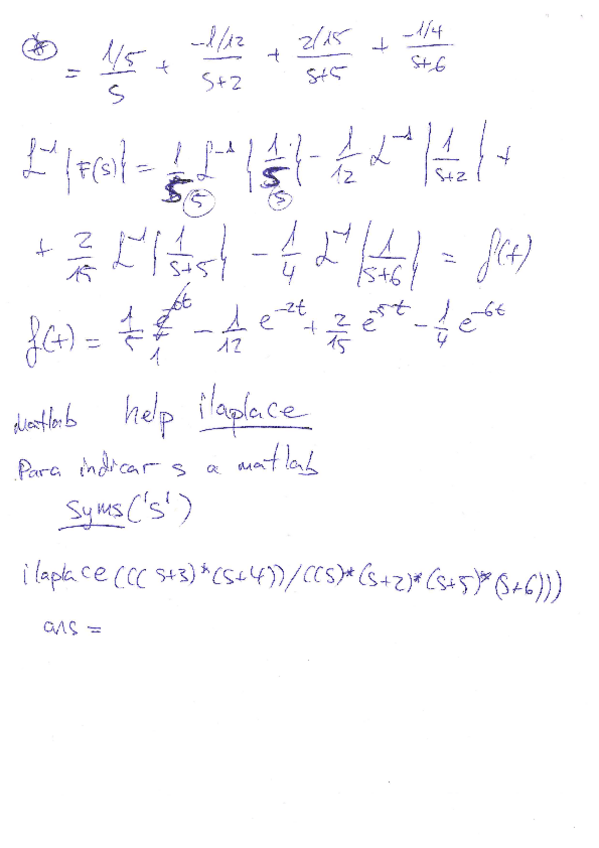 * = 1/5/S + -1/12/S+2 + 2/15/S+5 + -1/4/S+6
L⁻¹{F(s)} = 1/5 L⁻¹{1/5} - 1/12 L⁻¹{1/S+2} +
5 5
+ 2/15 L⁻¹{1/S+5} - 1/4 L⁻¹{1/S+6} = f(t)
f(t) = 1/5 1 - 1/12 e^-2t + 2/15 e^-5t - 1/4 e^-6t
Matlab help ilaplace
Para indicar s a matlab
syms('s')
ilaplace(((s+3)*(s+4))/((s)*(s+2)*(s+5)*(s+6)))
ans =